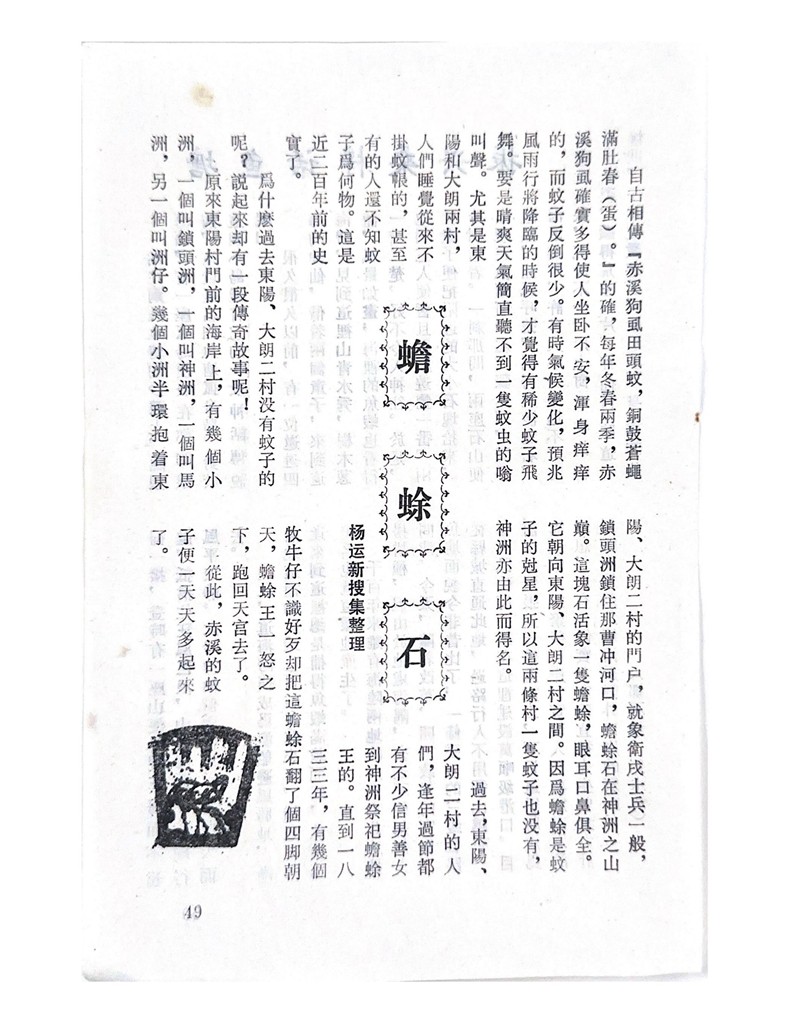 蟾蜍石
杨运新搜集整理
自古相傳『赤溪狗虱田頭蚊，銅鼓蒼蠅
滿肚春（蛋）。』的確，每年冬春兩季，赤
溪狗虱確實多得使人坐卧不安，渾身痒痒
的，而蚊子反倒很少。有時氣候變化，預兆
風雨行將降臨的時候，才覺得有稀少蚊子飛
舞。要是晴爽天氣簡直聽不到一隻蚊虫的嗡
叫聲。尤其是東
陽和大朗兩村，
人們睡覺從來不
掛蚊帳的，甚至
有的人還不知蚊
子爲何物。這是
近二百年前的史
實了。
爲什麽過去東陽、大朗二村没有蚊子的
呢？説起來却有一段傳奇故事呢！
原來東陽村門前的海岸上，有幾個小
洲，一個叫鎖頭洲，一個叫神洲，一個叫馬
洲，另一個叫洲仔。幾個小洲半環抱着東
陽、大朗二村的門户，就象衛戍士兵一般，
鎖頭洲鎖住那曹冲河口，蟾蜍石在神洲之山
巔。這塊石活象一隻蟾蜍，眼耳口鼻俱全。
它朝向東陽、大朗二村之間。因爲蟾蜍是蚊
子的尅星，所以這兩條村一隻蚊子也没有，
神洲亦由此而得名。
過去，東陽、
大朗二村的人
們，逢年過節都
有不少信男善女
到神洲祭祀蟾蜍
王的。直到一八
三三年，有幾個
牧牛仔不識好歹却把這蟾蜍石翻了個四脚朝
天，蟾蜍王一怒之
下，跑回天宫去了。
從此，赤溪的蚊
子便一天天多起來
了。
49